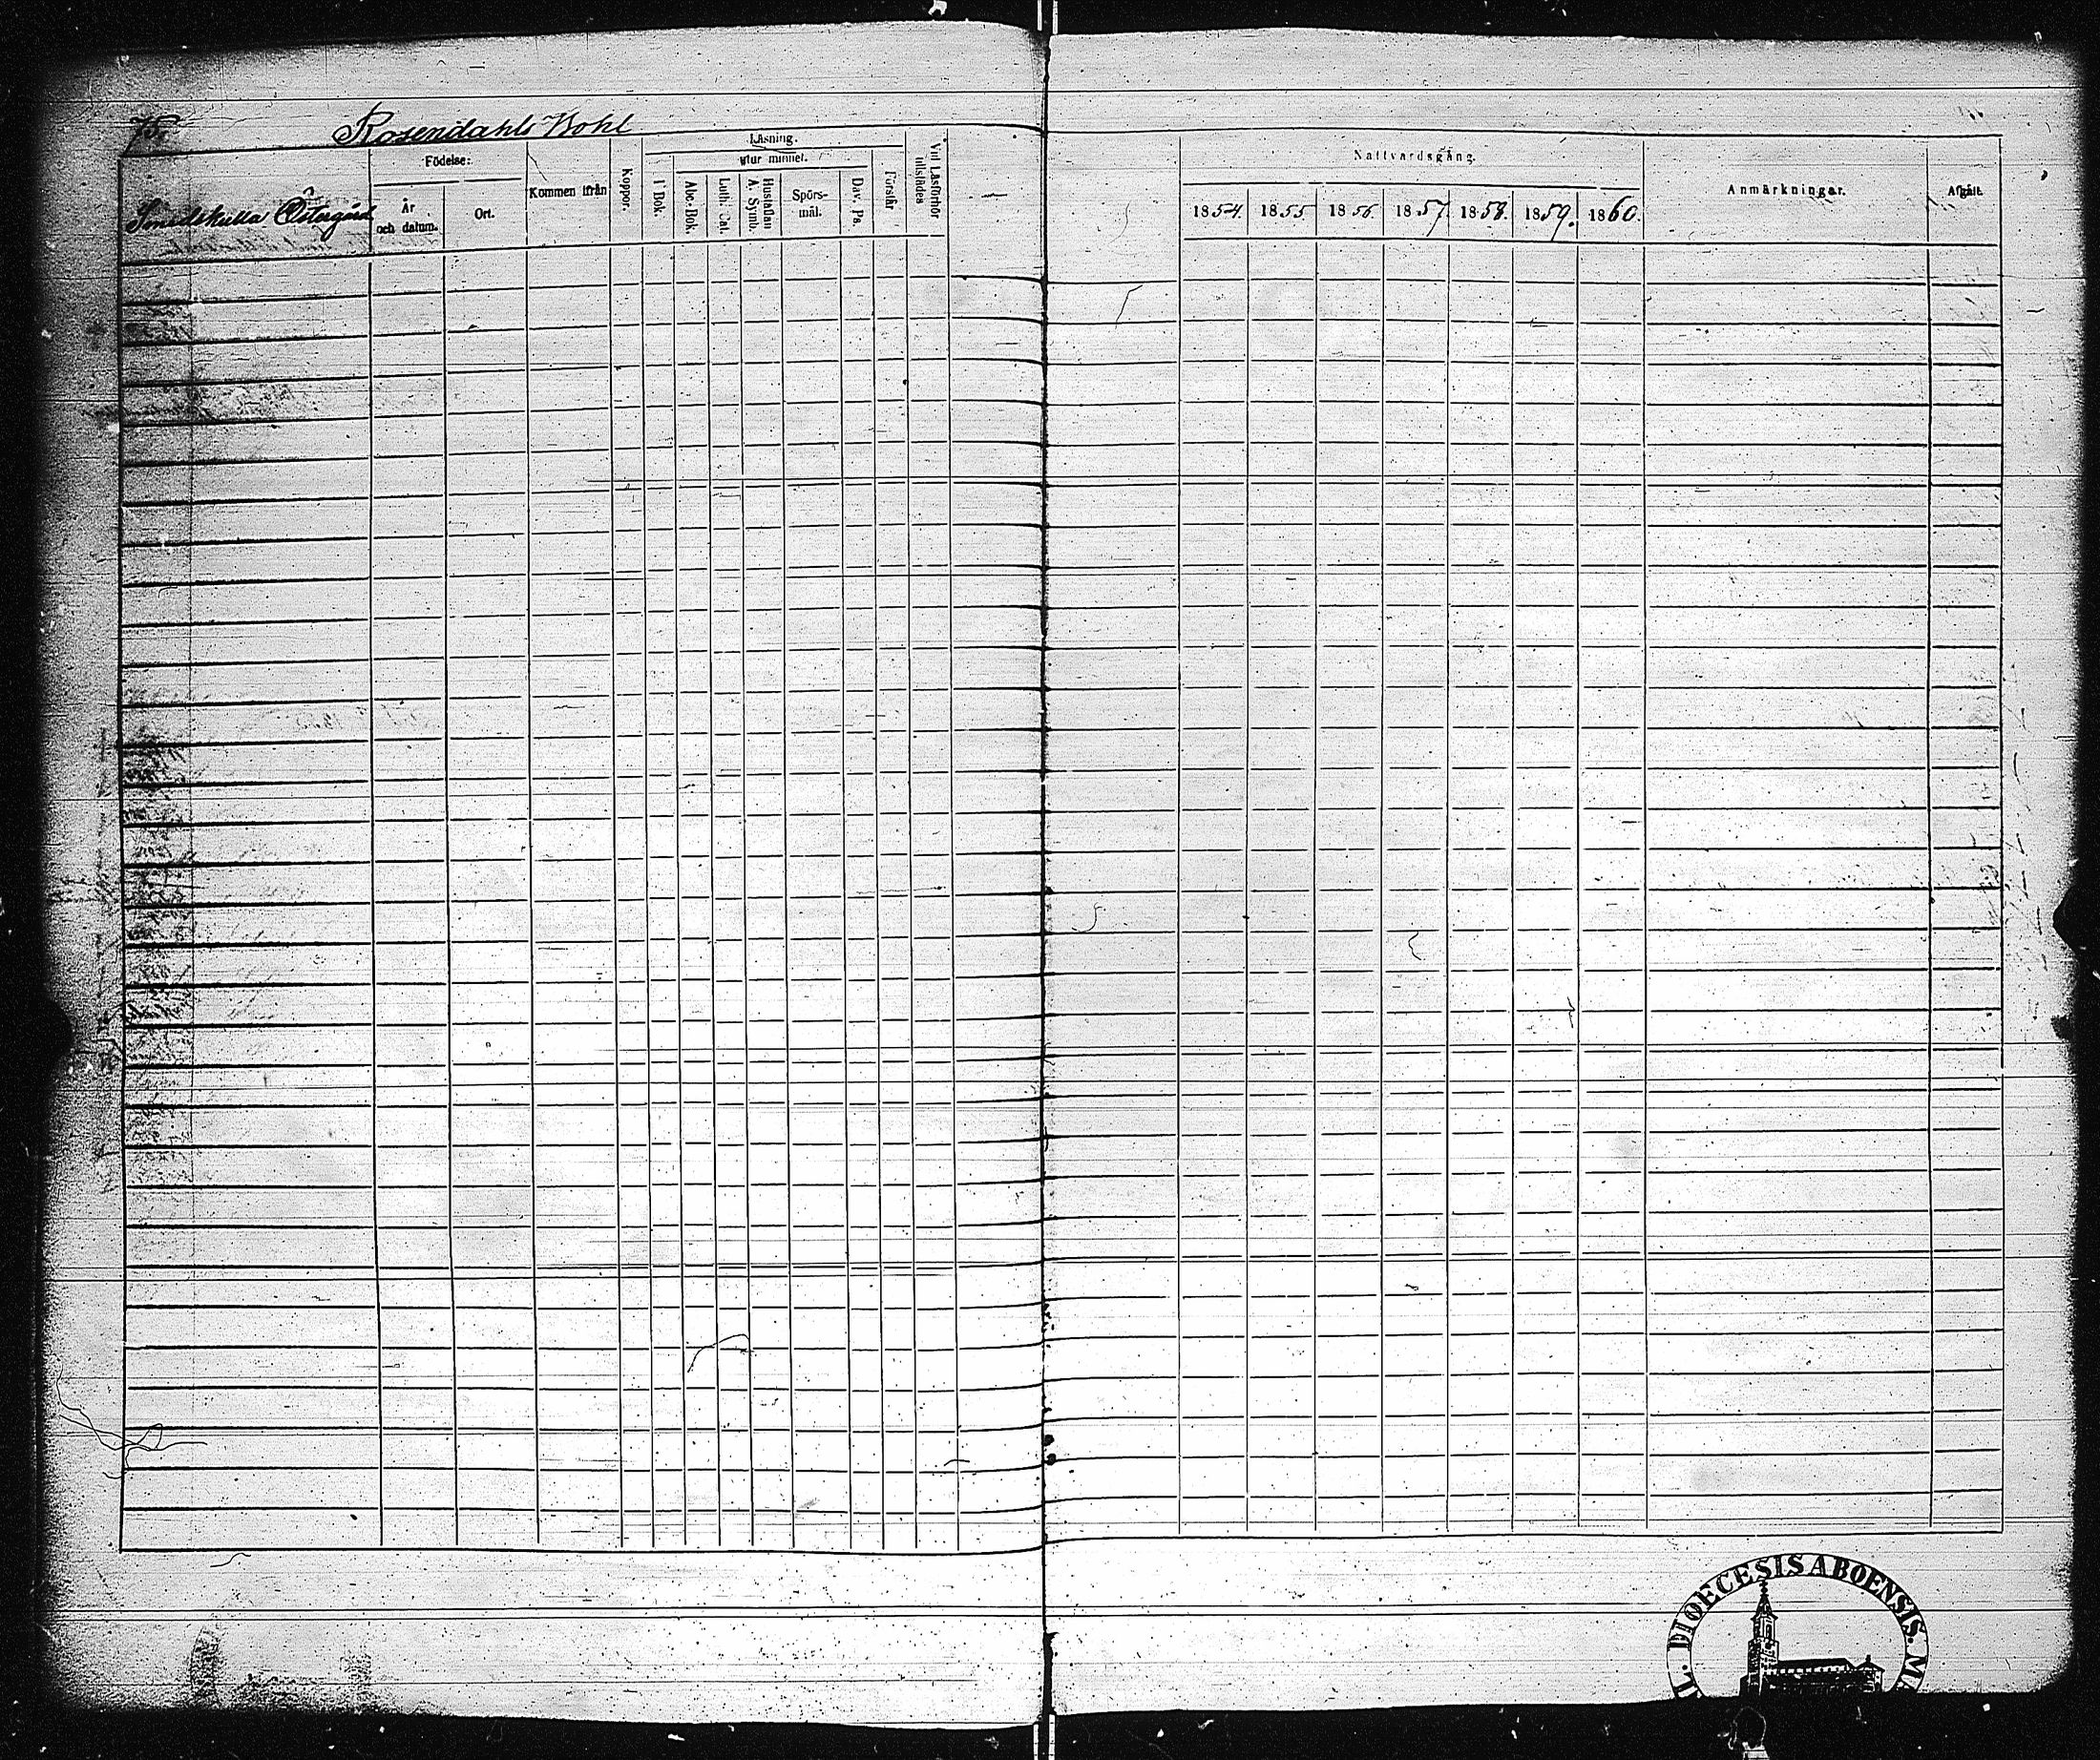 75.
Rosendahls Bohl
Smedskulla Östergård
Födelse:
År och datum.
Ort.
Kommen ifrån
Koppor.
Läsning.
utur minnet.
I Bok.
Abc-Bok.
Luth. Cat.
Hustaflan A. Symb.
Spörs-
mål.
Dav. Ps.
Förstår
Vid Läsförhör tillstädes
Nattvardsgång.
1854. 1855 1856. 1857 1858. 1859. 1860.
Anmärkningar.
Afgått.
DIOECESIS ABOENSIS.